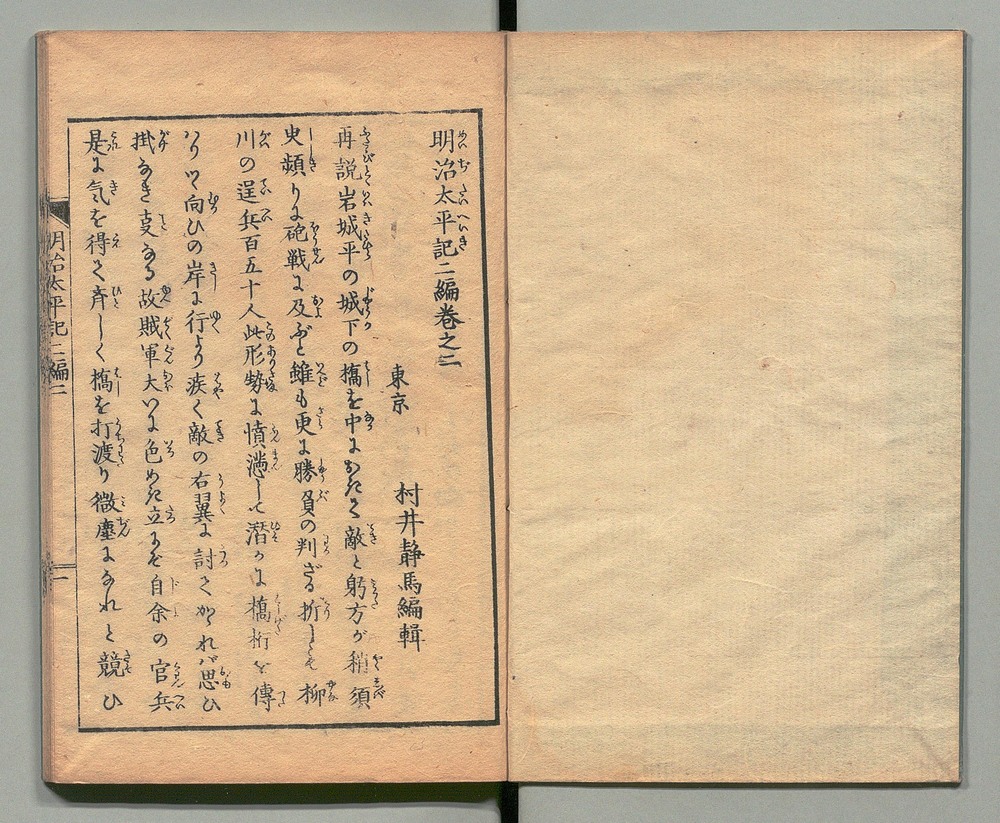 明治太平記二編巻之二
東京　村井静馬編輯
再説岩城平の城下の橋を中におきて敵と躬方が稍須
臾頻りに砲戦に及ぶと雖も更に勝負の判ざる折しも柳
川の逞兵百五十人此形勢に憤懣して潜かに橋桁を傳
りつゝ向ひの岸に行より疾く敵の右翼に討てかゝれバ思ひ
掛なき支なる故賊軍大いに色めき立にぞ自余の官兵
是に気を得て斉しく橋を打渡り微塵になれと競ひ
明治太平記二編二
一